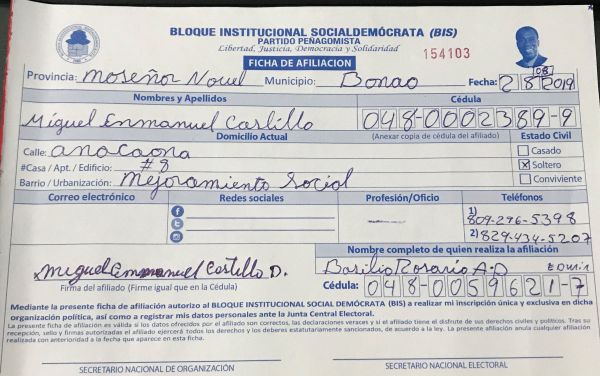 BLOQUE INSTITUCIONAL SOCIALDEMÓCRATA (BIS)
PARTIDO PEÑAGOMISTA
Libertad, Justicia, Democracia y Solidaridad
154103
FICHA DE AFILIACION
Provincia: Moseñor Nouel Municipio: Bonao Fecha: 2/8/2019
(08)
Nombres y Apellidos Cédula
Miguel Enmanuel Castillo 048-0002389-9
Domicilio Actual (Anexar copia de cédula del afiliado) Estado Civil
Calle: anacaona Casado
#Casa / Apt. / Edificio: #8 Soltero
Barrio / Urbanización: Mejoramiento Social Conviviente
Correo electrónico Redes sociales Profesión/Oficio Teléfonos
1) 809-296-5398
2) 829-434-5207
Nombre completo de quien realiza la afiliación
Miguel Emmanuel Castillo D. Basilio Rosario A.D Edwin
Firma del afiliado (Firme igual que en la Cédula) Cédula: 048-0059621-7
Mediante la presente ficha de afiliación autorizo al BLOQUE INSTITUCIONAL SOCIAL DEMÓCRATA (BIS) a realizar mi inscripción única y exclusiva en dicha
organización política, así como a registrar mis datos personales ante la Junta Central Electoral.
La presente ficha de afiliación es válida si los datos ofrecidos por el afiliado son correctos, las declaraciones veraces y si el afiliado tiene el disfrute de sus derechos civiles y políticos. Tras su
recepción, sello y firmas autorizadas el afiliado ejercerá todos los derechos y los deberes estatutariamente sancionados, de acuerdo a la ley. La presente afiliación anula cualquier afiliación
realizada con anterioridad a la fecha que aparece en esta ficha.
SECRETARIO NACIONAL DE ORGANIZACIÓN SECRETARIO NACIONAL ELECTORAL